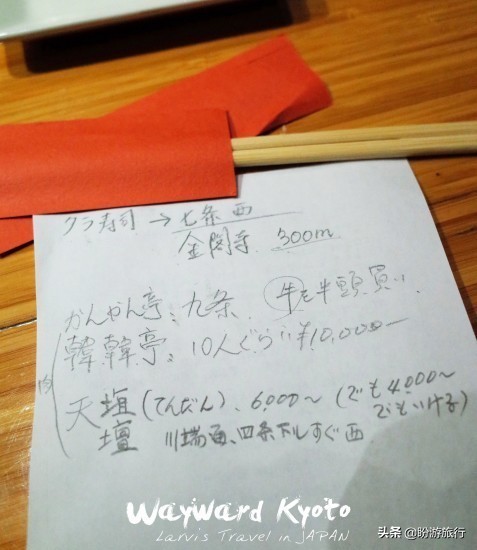 クラ寿司→七条西
金閣寺 300m
かんかん亭：九条 牛を半頭買い
韓韓亭：10人ぐらい¥10,000-
天塩（てんだん）、6,000～（でも4,000～
壇 川端通、四条下ルすぐ西 でもいける）
Wayward Kyoto
Larvis Travel in JAPAN
头条 @盼游旅行